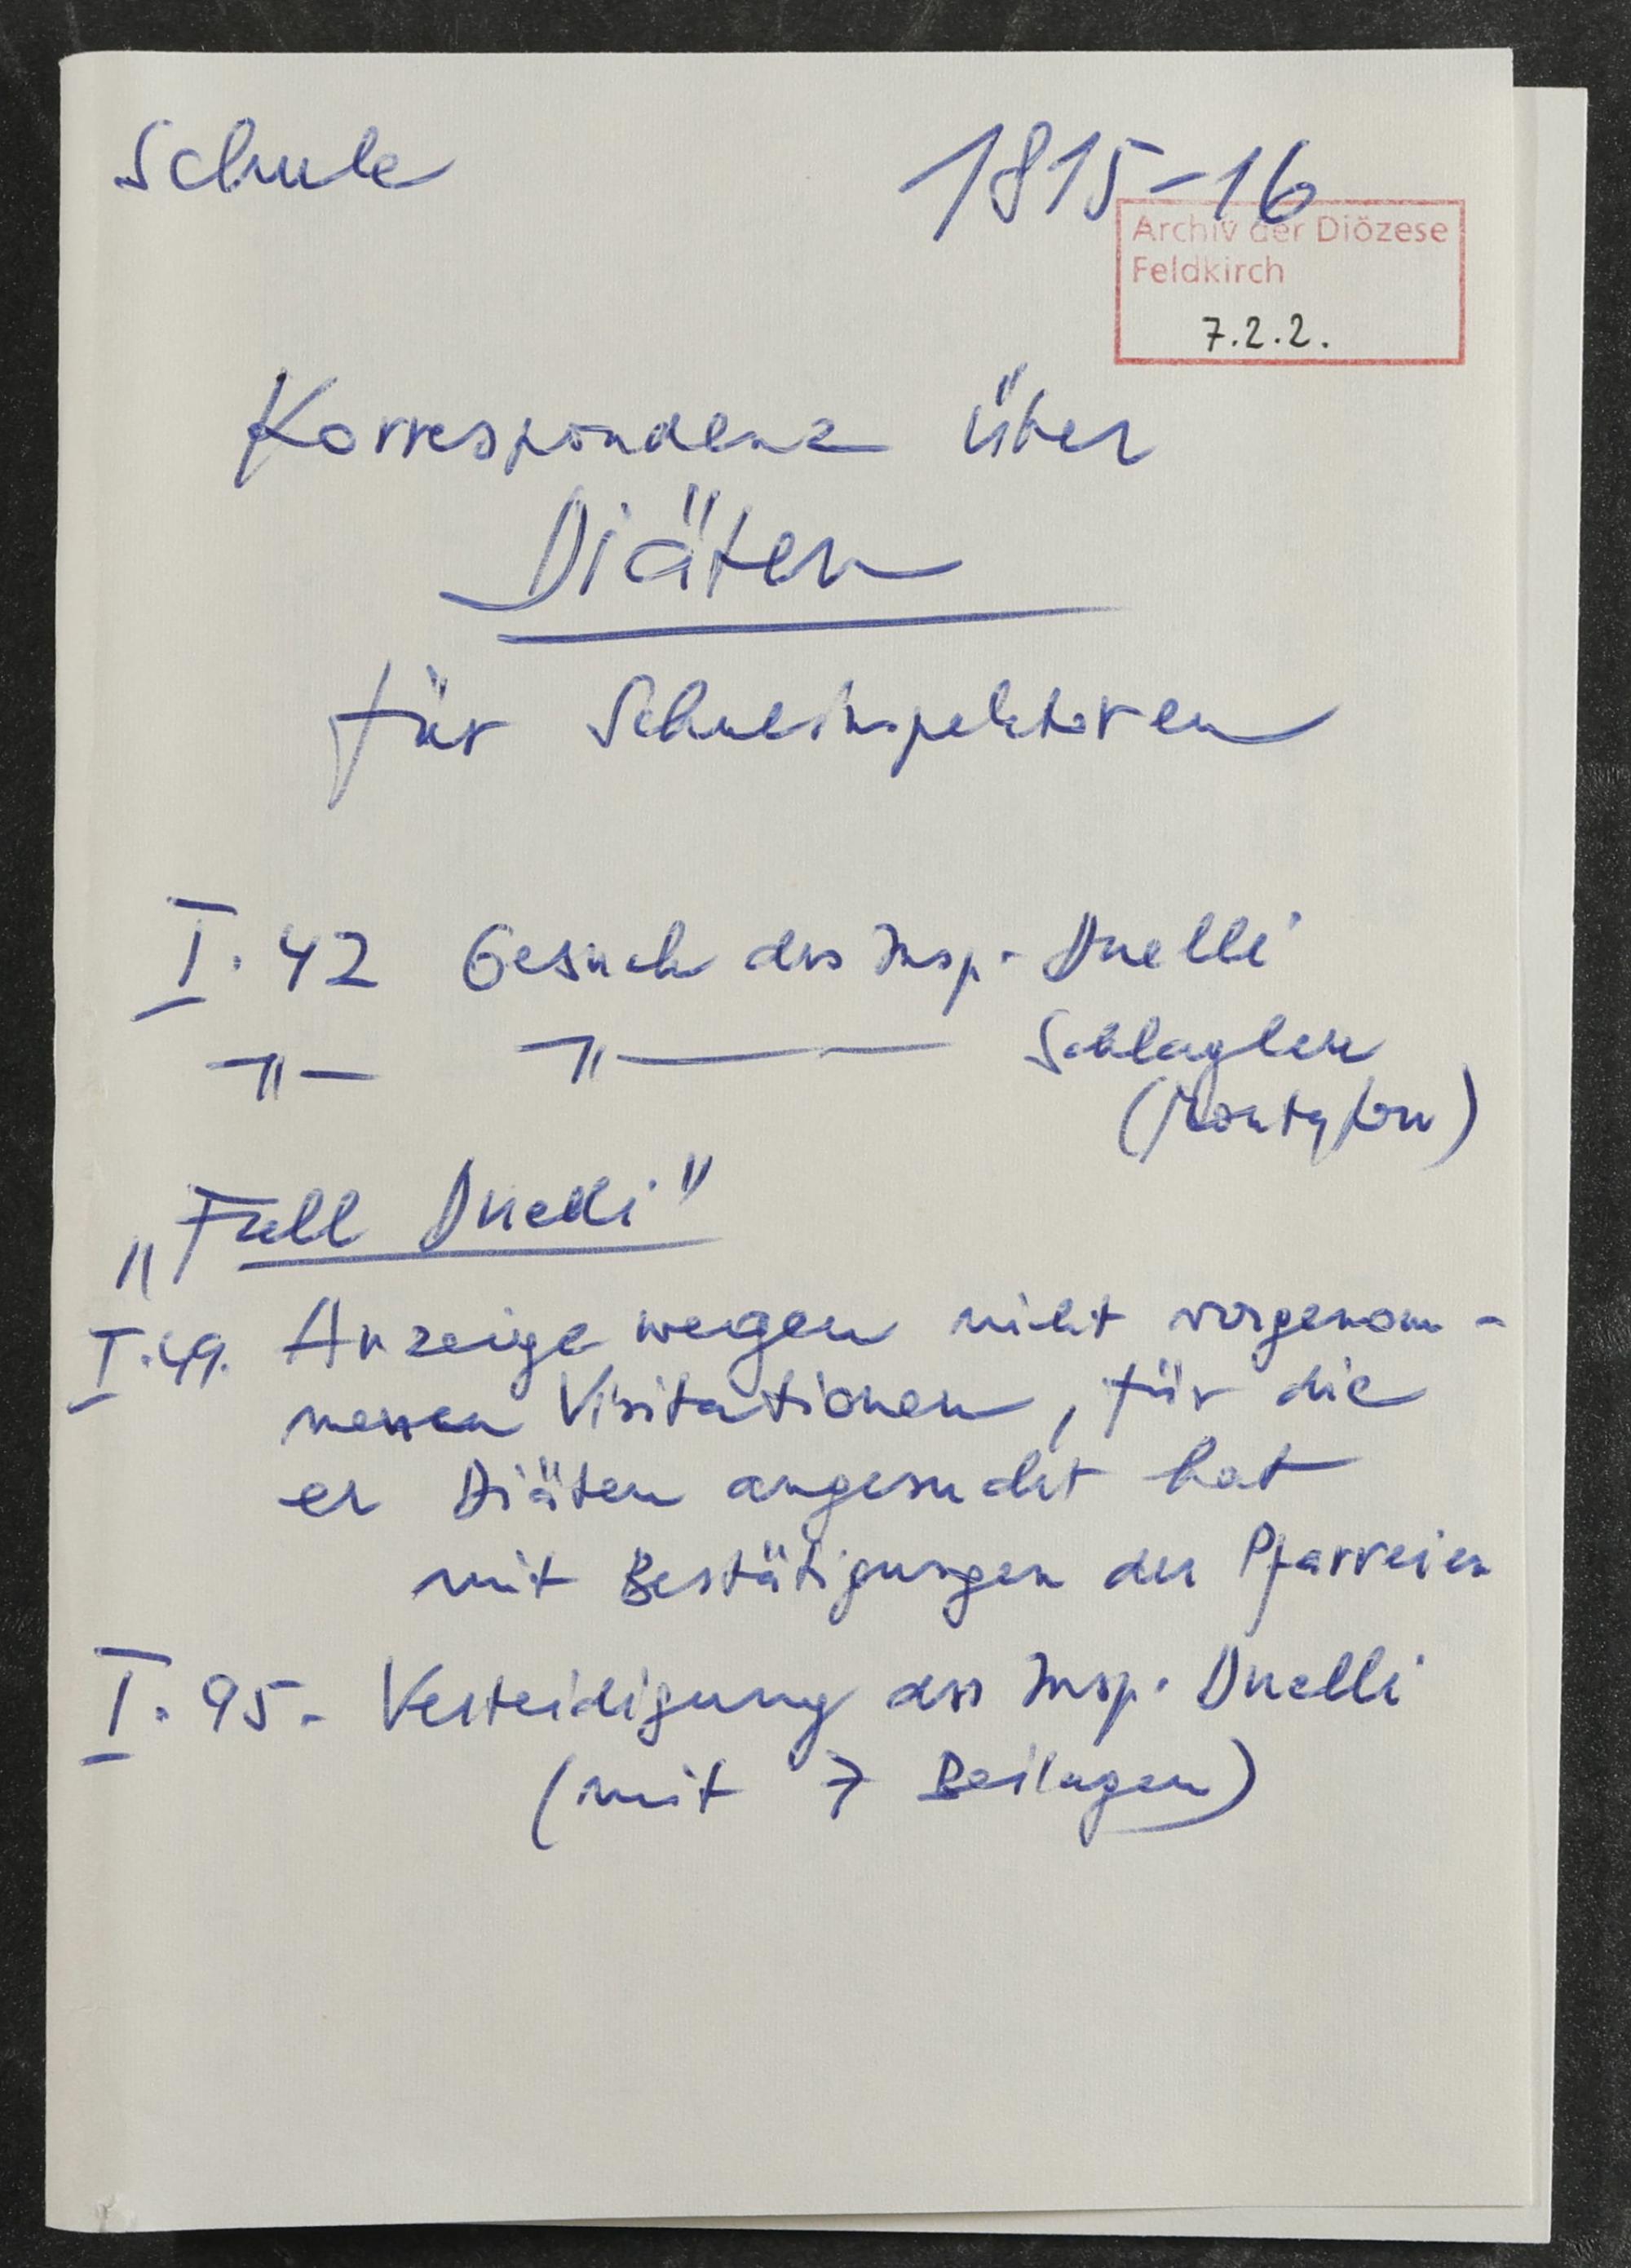 Schule
1815-16
Archiv der Diözese
Feldkirch
7.2.2.
Korrespondenz über
Diäten
für Schulinspektoren
I. 42 Gesuch des Insp. Duelli
-"- -"- Schlaglen
(Montafon)
„Fall Duelli"
I.49. Anzeige wegen nicht vorgenom-
menen Visitationen, für die
er Diäten angesucht hat
mit Bestätigungen der Pfarreien
I. 95. Verteidigung des Insp. Duelli
(mit 7 Beilagen)